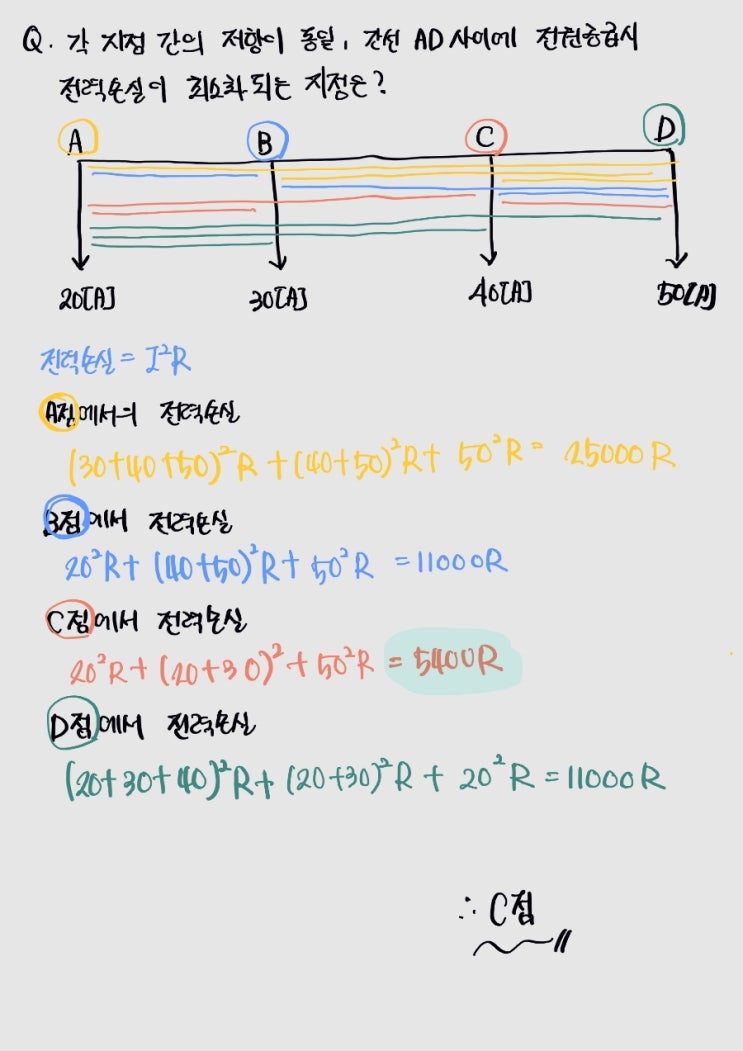 Q. 각 지점 간의 저항이 동일, 간선 AD 사이에 전원공급시
전력손실이 최소화 되는 지점은?
A B C D
20[A] 30[A] 40[A] 50[A]
전력손실 = I²R
A점에서의 전력손실
(30+40+50)²R + (40+50)²R + 50²R = 25000R
B점에서 전력손실
20²R + (40+50)²R + 50²R = 11000R
C점에서 전력손실
20²R + (20+30)² + 50²R = 5400R
D점에서 전력손실
(20+30+40)²R + (20+30)²R + 20²R = 11000R
∴ C점